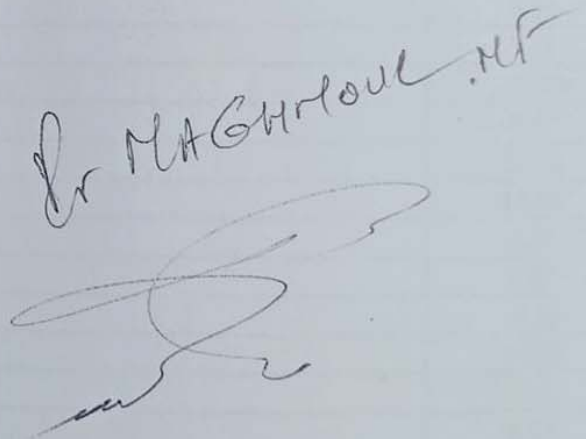 Pr MAGHMOUL .MF